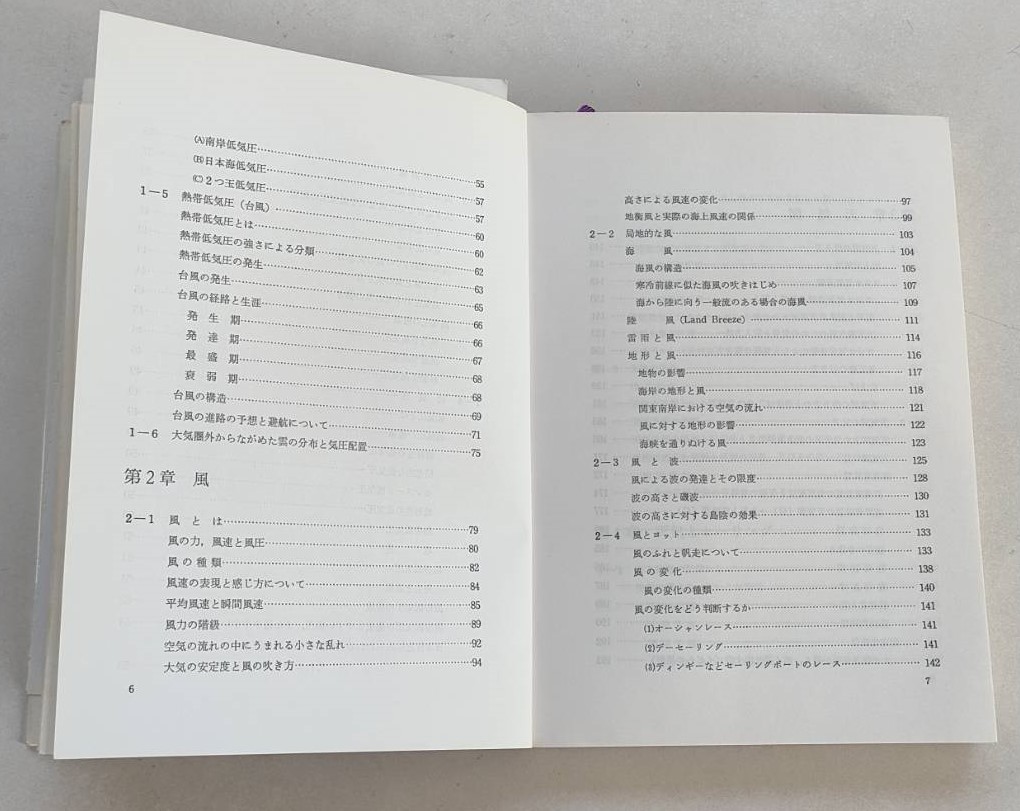 (A)南岸低気圧……55
(B)日本海低気圧……57
(C)2つ玉低気圧……57
1－5 熱帯低気圧（台風）……60
熱帯低気圧とは……60
熱帯低気圧の強さによる分類……62
熱帯低気圧の発生……63
台風の発生……65
台風の経路と生涯……66
発生期……66
発達期……67
最盛期……68
衰弱期……68
台風の構造……69
台風の進路の予想と避航について……71
1－6 大気圏外からながめた雲の分布と気圧配置……75
第2章 風
2－1 風とは……79
風の力，風速と風圧……80
風の種類……82
風速の表現と感じ方について……84
平均風速と瞬間風速……85
風力の階級……89
空気の流れの中にうまれる小さな乱れ……92
大気の安定度と風の吹き方……94
6
高さによる風速の変化……97
地衡風と実際の海上風速の関係……99
2－2 局地的な風……103
海風……104
海風の構造……105
寒冷前線に似た海風の吹きはじめ……107
海から陸に向う一般流のある場合の海風……109
陸風（Land Breeze）……111
雷雨と風……114
地形と風……116
地物の影響……117
海岸の地形と風……118
関東南岸における空気の流れ……121
風に対する地形の影響……122
海峡を通りぬける風……123
2－3 風と波……125
風による波の発達とその限度……128
波の高さと磯波……130
波の高さに対する島陰の効果……131
2－4 風とヨット……133
風のふれと帆走について……133
風の変化……138
風の変化の種類……140
風の変化をどう判断するか……141
(1)オーシャンレース……141
(2)デーセーリング……141
(3)ディンギーなどセーリングボートのレース……142
7